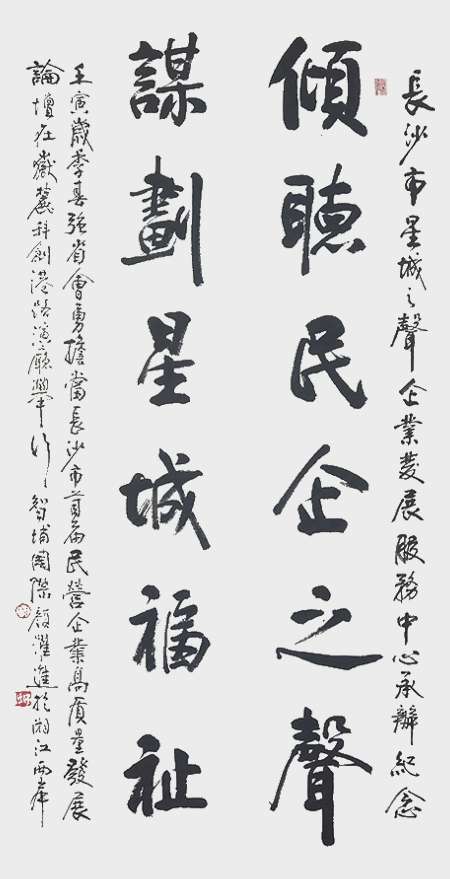 長沙市星城之聲企業發展服務中心承辦紀念
傾聽民企之聲
謀劃星城福祉
壬寅歲季春強省會勇擔當長沙市首届民營企業高质量發展
論壇在嶽麓科創港路演廳舉行智埔國際進於湘江西岸